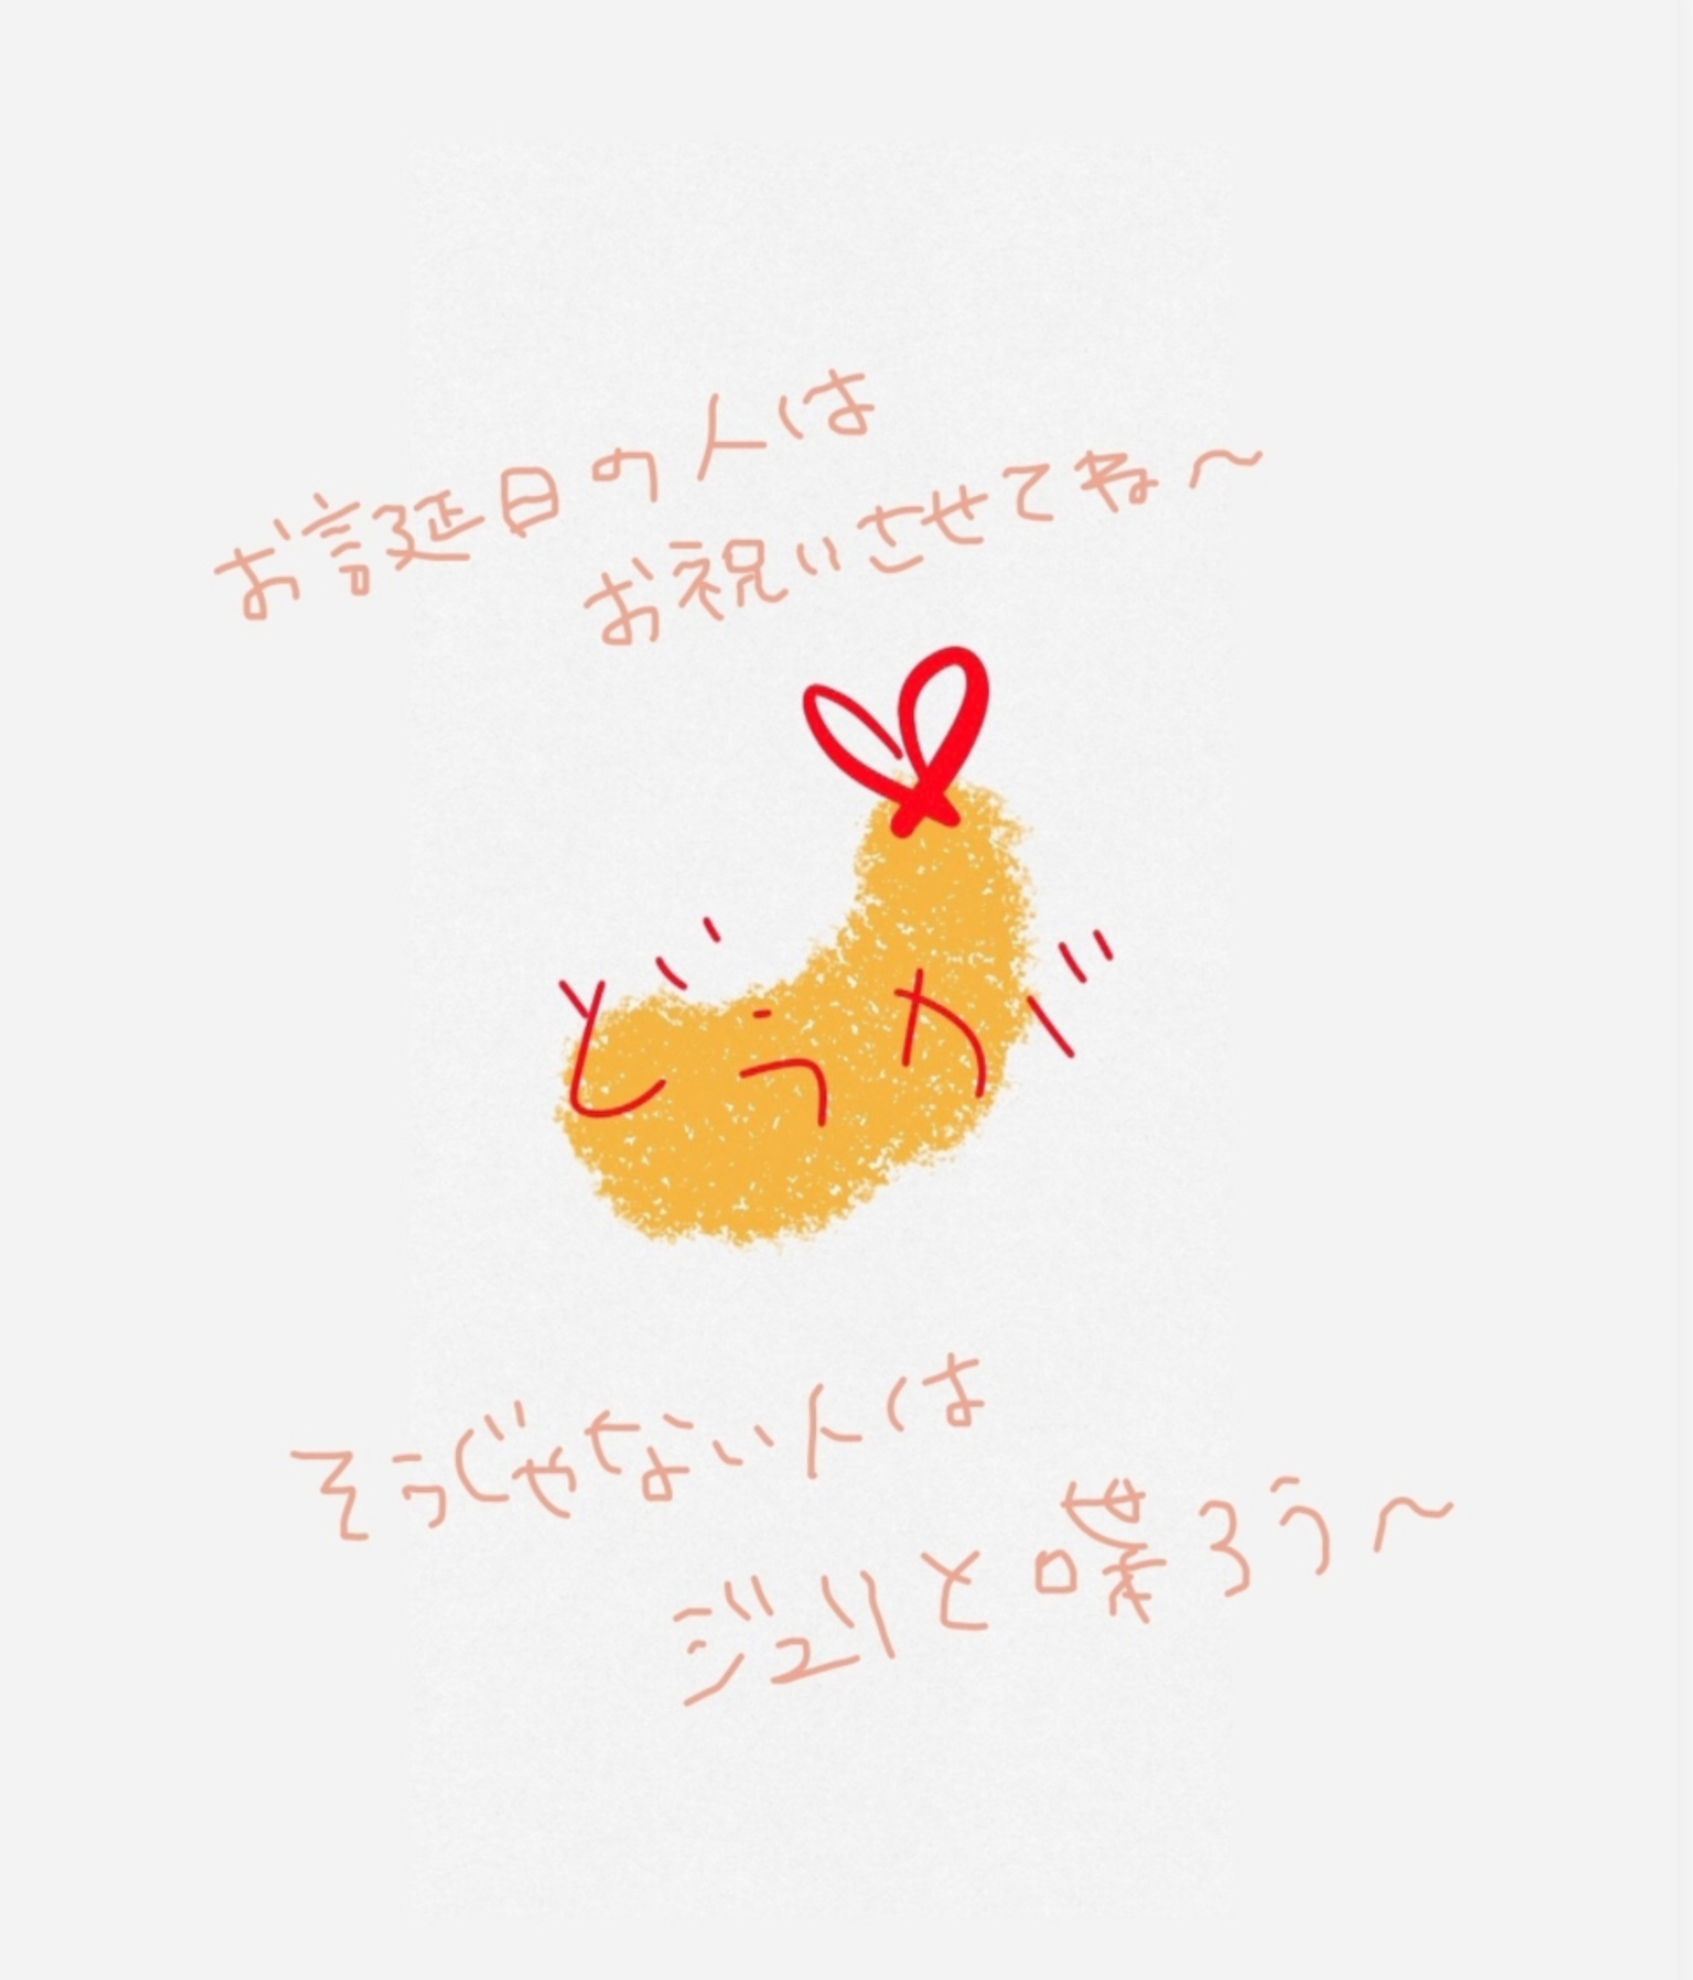 お誕日の人は
お祝いさせてね～
どうが
そうじゃない人は
ジュリと喋ろう～